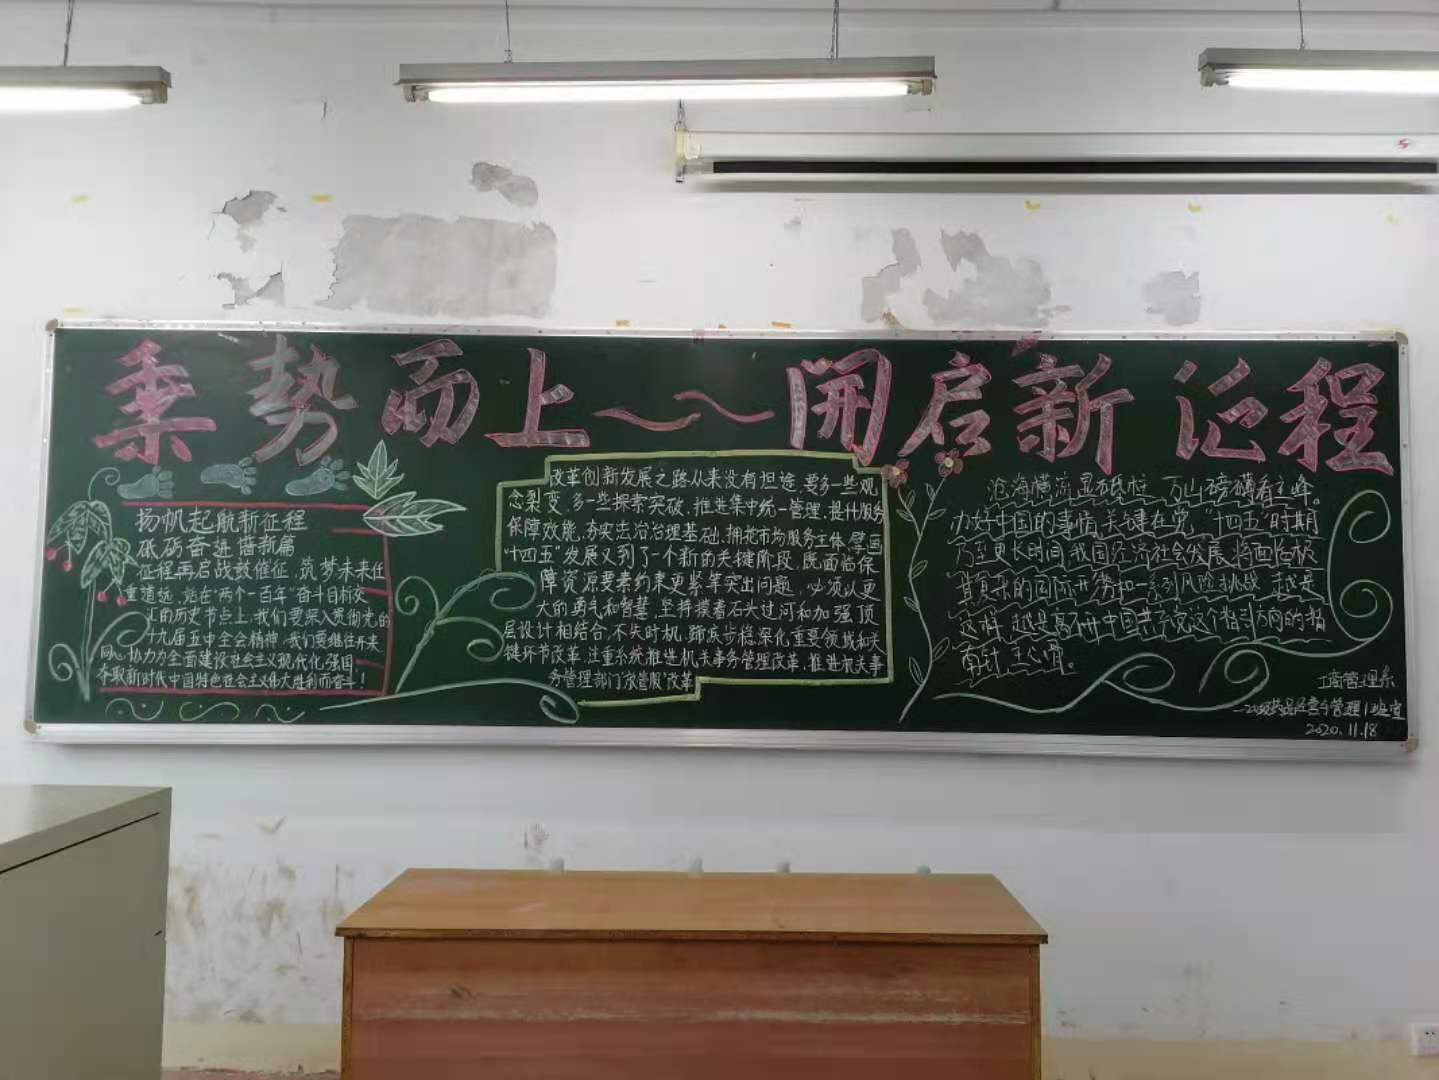 乘势而上～～开启新征程
扬帆起航新征程
砥砺奋进谱新篇
征程再启战鼓催征,筑梦未来任
重道远,站在“两个一百年”奋斗目标交
汇的历史节点上,我们要深入贯彻党的
十九届五中全会精神,我们要继往开来
同心协力为全面建设社会主义现代化强国
夺取新时代中国特色社会主义伟大胜利而奋斗!
改革创新发展之路从来没有坦途,要多一些观
念裂变,多一些探索突破,推进集中统一管理,提升服务
保障效能,夯实法治治理基础,拥抱市场服务主体,擘画
“十四五”发展又到了一个新的关键阶段,既面临保
障资源要素约束更紧等突出问题,必须以更
大的勇气和智慧,坚持摸着石头过河和加强顶
层设计相结合,不失时机,蹄疾步稳深化重要领域和关
键环节改革,注重系统推进机关事务管理改革,推进机关事
务管理部门“放管服”改革
沧海横流显砥柱,万山磅礴看主峰。
办好中国的事情,关键在党,“十四五”时期
乃至更长时间,我国经济社会发展将面临极
其复杂的国际形势和一系列风险挑战,越是
这样,越是离不开中国共产党这个指引方向的指
南针、主心骨。
工商管理系
药品经营与管理1班宣
2020.11.18